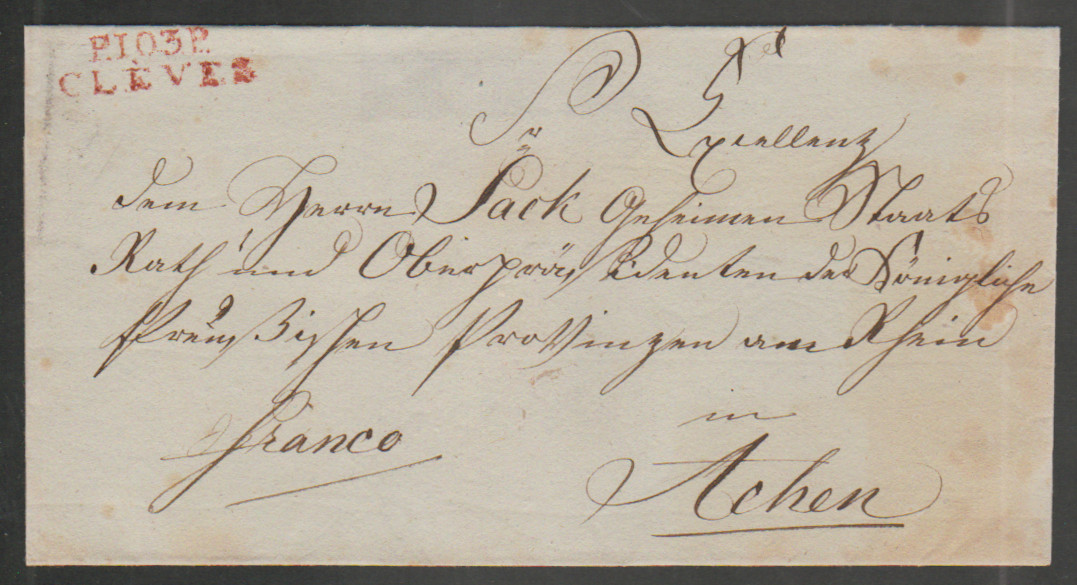 P.103.P.
CLÈVES
Sr Excellenz
dem Herrn Sack Geheimen Staats
Rath und Oberpräsidenten der Königliche
Preußischen Provinzen am Rhein
in
Franco
Achen